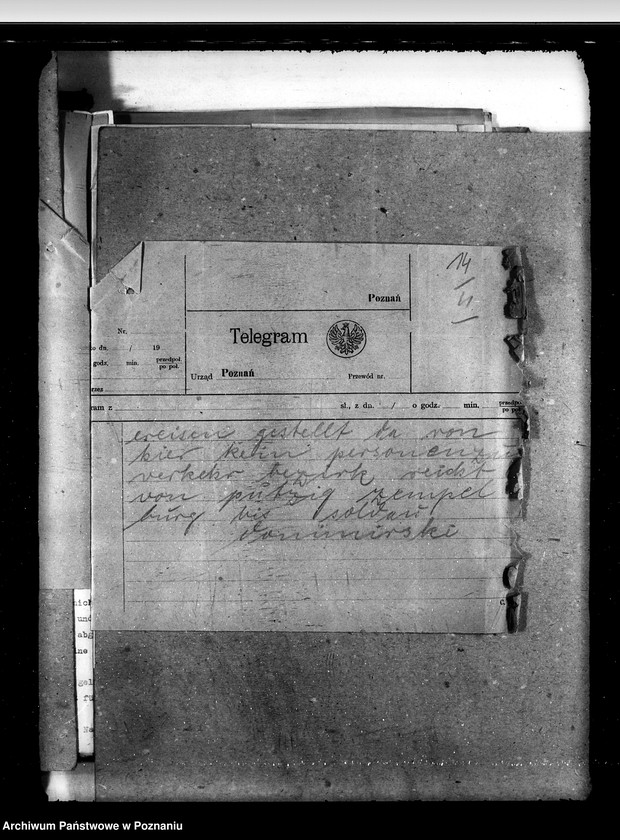 14
11
Poznań
Nr.
Telegram
o dn. / 19
godz. min. przedpoł.
po poł.
Urząd Poznań
Przewód nr.
rzez
ram z sł., z dn. / o godz. min. przedpo
po poł
ereisen gestellt da von
hier kein personenzu
verkehr bezirk reicht
von putzig zempel
burg bis soldau
donimirski
nich
und
abg
ne
gel
fu
Ne
Archiwum Państwowe w Poznaniu